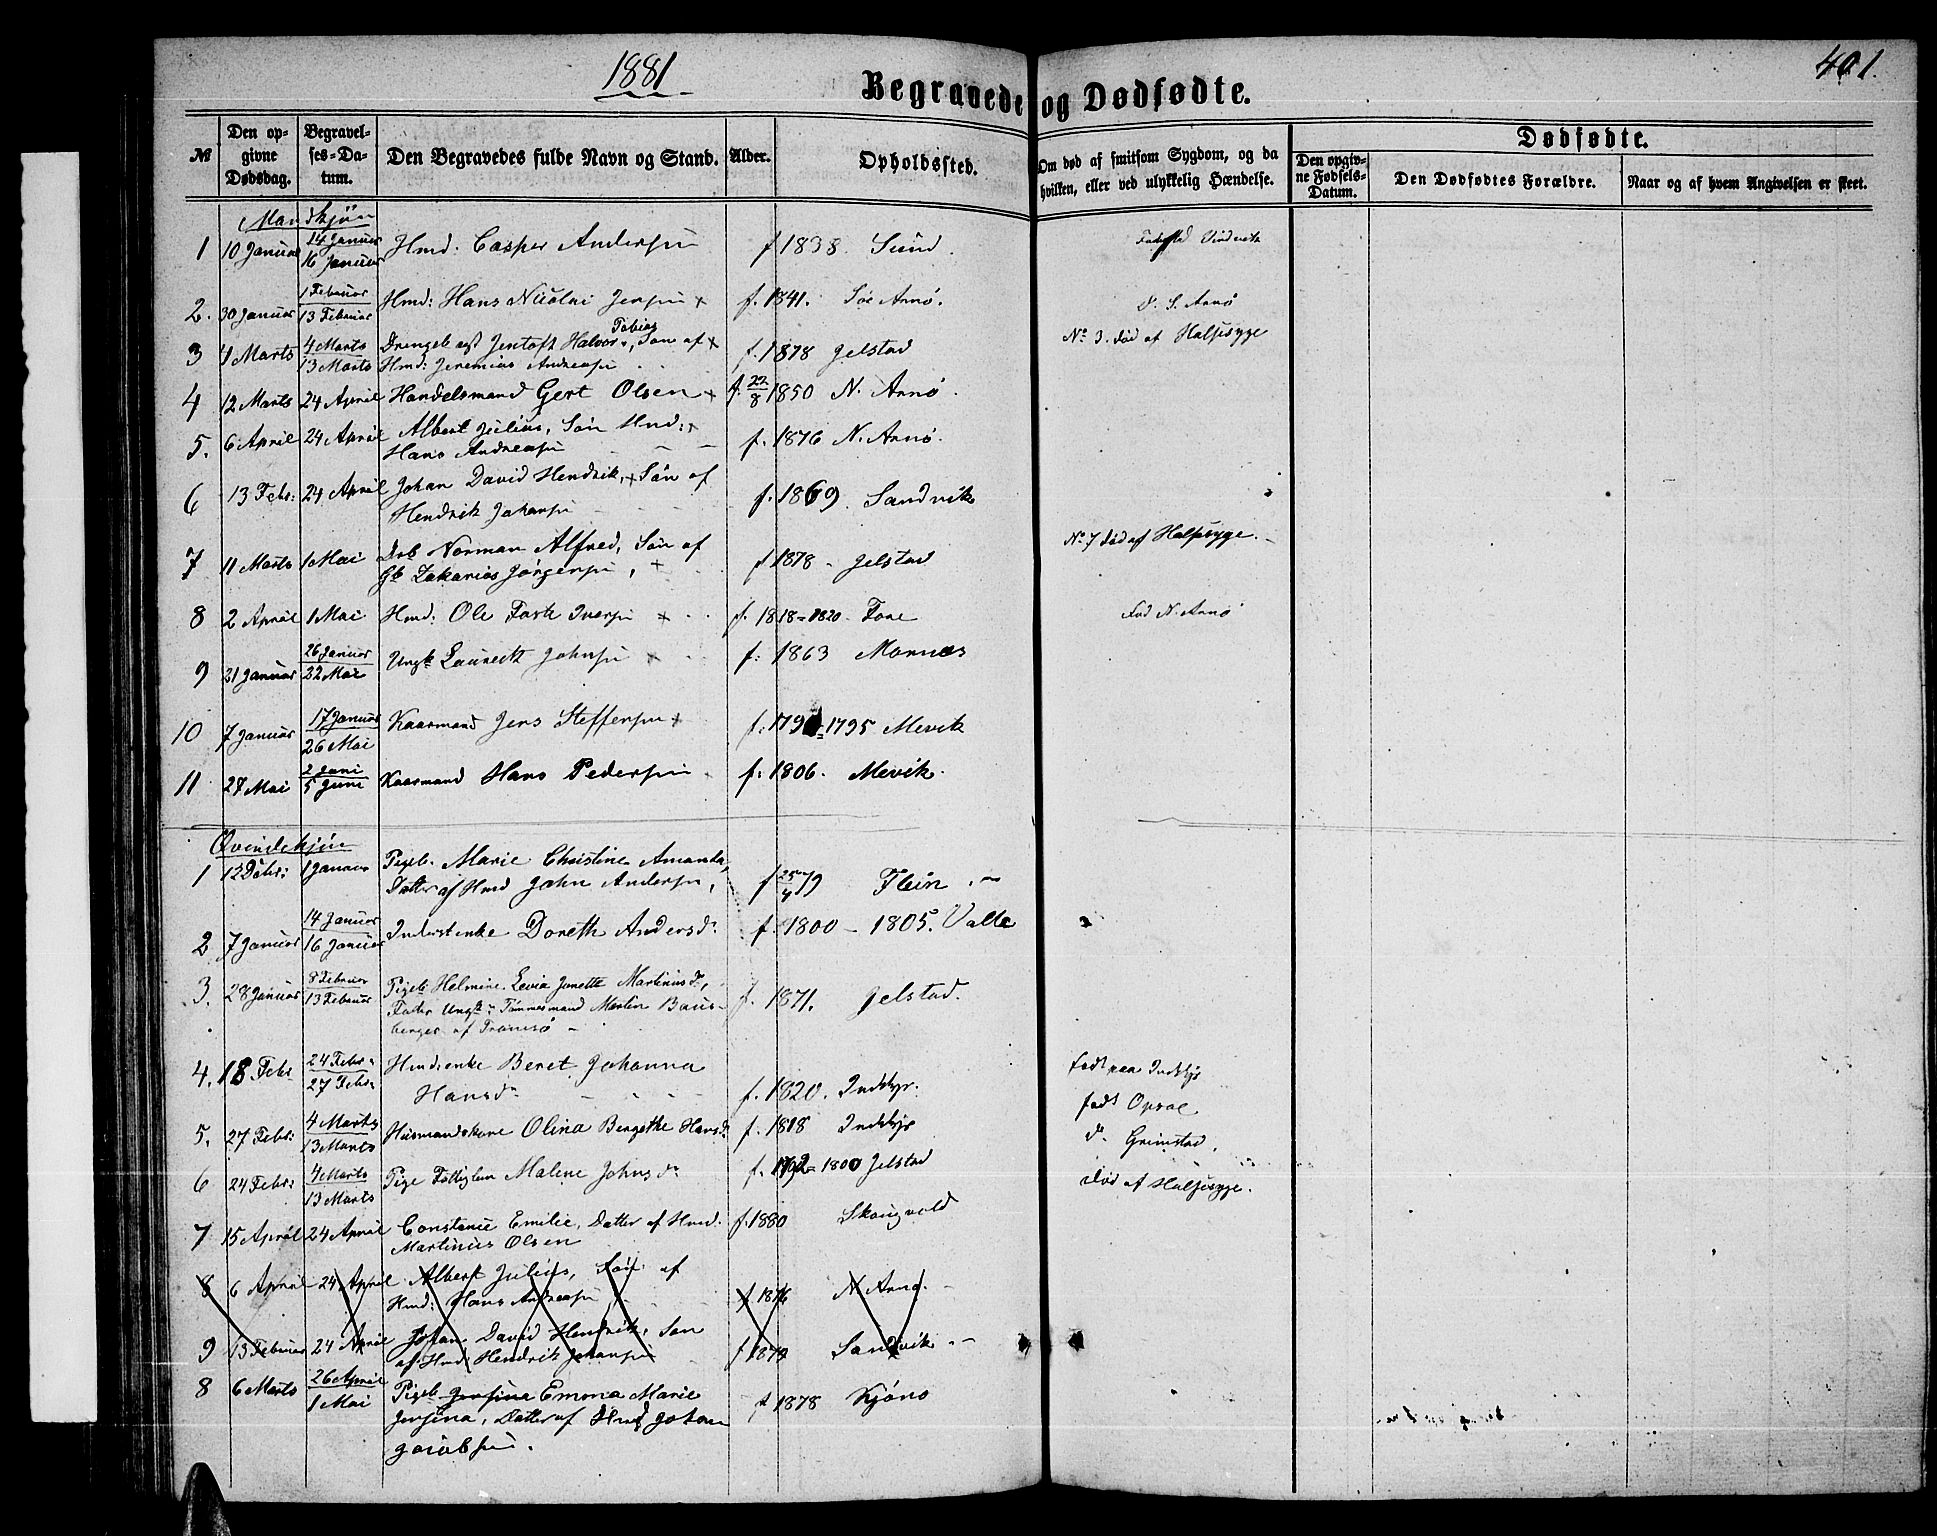 1881
401.
Begravede og Dødfødte.
№
Den opgivne Dødsdag.
Begravelses-Datum.
Den Begravedes fulde Navn og Stand.
Alder.
Opholdssted.
Om død af smitsom Sygdom, og da hvilken, eller ved ulykkelig Hændelse.
Dødfødte.
Den opgivne Fødsels-Datum.
Den Dødfødtes Forældre.
Naar og af hvem Angivelsen er skeet.
Mandkjön
1 10 Januar 14 Januar 16 Januar Hmd: Casper Andersen f 1838. Sund.
2. 30 Januar 1 Februar 13 Februar Hmd: Hans Nicolai Jensen + f. 1841. Sör Arnö. S. Arnö
3 4 Marts 4 Marts 13 Marts Jentoft Halvor Tobias, Sön af + f. 1878 Gelstad No 3. död af Halssyge
Hmd: Jeremias Andreasen
4 12 Marts 24 April Handelsmand Gert Olsen + f. 22/8 1850 N. Arnö.
5. 6 April 24 April Albert Julius, Sön Hmd: + f. 1876 N. Arnö.
Hans Andreasen
6 13 Febr: 24 April Johan David Hendrik, + Sön af f. 1869. Sandvik
Hendrik Johansen
7 11 Marts 1 Mai Drb Norman Alfred, Sön af f 1878 - Gelstad No 7 död af Halssyge.
Gb Zakarias Jörgensen, +
8 2 April 1 Mai Hmd: Ole Iversen + f. 1818=1820. Fore Föd N. Arnö
9 21 Januar 26 Januar 22 Mai Ungk Laurits Johnsen + f: 1863 Mornes
10 7 Januar 17 Januar 26 Mai Kaarmand Jens Steffensen + 1795 Mevik
11 27 Mai 2 Juni 5 Juni Kaarmand Hans Pedersen f: 1806. Mevik.
Qvindekjön
1 12 Dcbr: 1 Januar Pigeb. Marie Christine Amanda, f 25/4 79 Flein
Datter af Hmd John Andersen,
2 7 Januar 14 Januar 16 Januar Inderstenke Doreth Andersdr f. 1800 - 1805. Valle
3. 28 Januar 8 Februar 13 Februar Pigeb Helmine Levia Janette Martinusdr, f. 1871. Gelstad.
Fader Ungk: Tömmermand Martin Baus-
berger af Tromsö -
4. 18 Febr 24 Febr: 27 Febr: Hmdsenke Beret Johanna
Hansdr f. 1820. Inddyr. född paa Inddyr
5. 27 Febr: 4 Marts 13 Marts Husmandskone Olina Bergethe Hansdr f. 1818 Inddyr född Opsal
6 24 Febr: 4 Marts 13 Marts Pige Fattiglem Malene Johnsdr f. 1792=1800 Gelstad do Grimstad,
död af Halssyge.
7 15 April 24 April Constance Emilie, Datter af Hmd: f. 1880 Skougvold
Martinus Olsen
8 6 April - 24 April Albert Julius, Sön af
Hmd: Hans Andreasen f 1876 N. Arnö. -
9 13 Februar 24 April Johan David Hendrik, Sön
af Hmd Hendrik Johansen f 1879 Sandvik
8 6 Marts 26 April 1 Mai Pigeb Jensina Emma Marie f 1878 Kjöno
Jensina, Datter af Hmd Johan
Jacobsen.